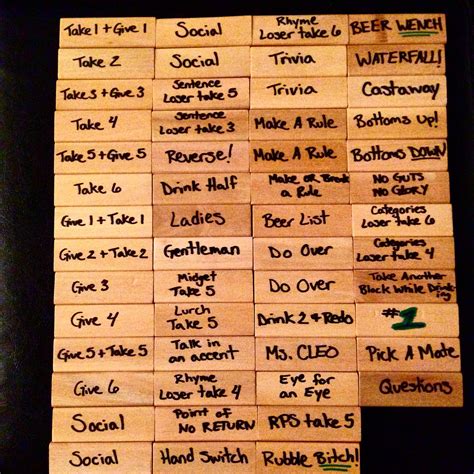 Take 1 + Give 1
Social
Rhyme
Loser take 6
BEER WENCH
Take 2
Social
Trivia
WATERFALL!
Take 3 + Give 3
Sentence
Loser take 5
Trivia
Castaway
Take 4
Sentence
Loser take 3
Make A Rule
Bottoms Up!
Take 5 + Give 5
Reverse!
Make A Rule
Bottoms DOWN
Take 6
Drink Half
Make or Break
a Rule
NO GUTS
NO GLORY
Give 1 + Take 1
Ladies
Beer List
Categories
Loser take 6
Give 2 + Take 2
Gentleman
Do Over
Categories
Loser take 4
Give 3
Midget
Take 5
Do Over
Take Another
Block While Drink-
ing
Give 4
Lurch
Take 5
Drink 2 & Redo
#1
Give 5 + Take 5
Talk in
an accent
Ms. CLEO
Pick A Mate
Give 6
Rhyme
Loser take 4
Eye for
an Eye
Questions
Social
Point of
NO RETURN
RPS take 5
Social
Hand Switch
Rubble Bitch!